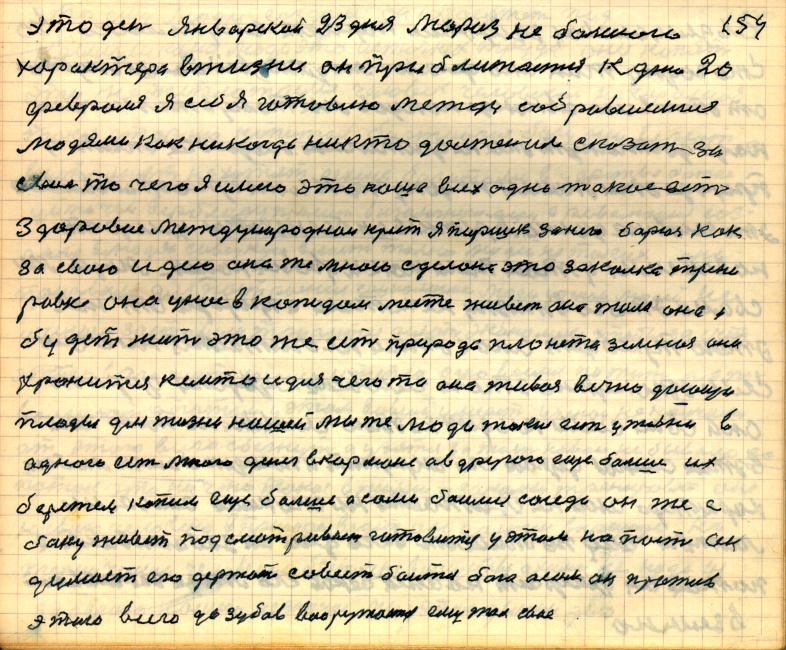 это ден январской 23 дня мороз не болшого 154
характера в жизни он приближается к дню 20
февроля я себя готовлю между собравшемися
людями как никогда никто должен им сказат за
свои то чего я имею это наша вих одно такое ест
Здоровие международнои крит я парщек за него борюс как
за свою идею она же много сделоне это заколка трени
ровке она у нас в кождом месте живет она жила она и
будет жит это же ест природа плонета земноя она
хронится кемто и для чего та она живоя вечно дающая
плоды для жизни нашей мы же люди такие ест у жизни в
одного ест много денег в кормоне а в другого еще болше их
бережем копим еще болше а сами боимся соседа он же с
боку живет подсмотривает готовится у этом напост он
думоет его держат совест боится бога а сам он против
этого всего до зубов вооружоный ему жал свое